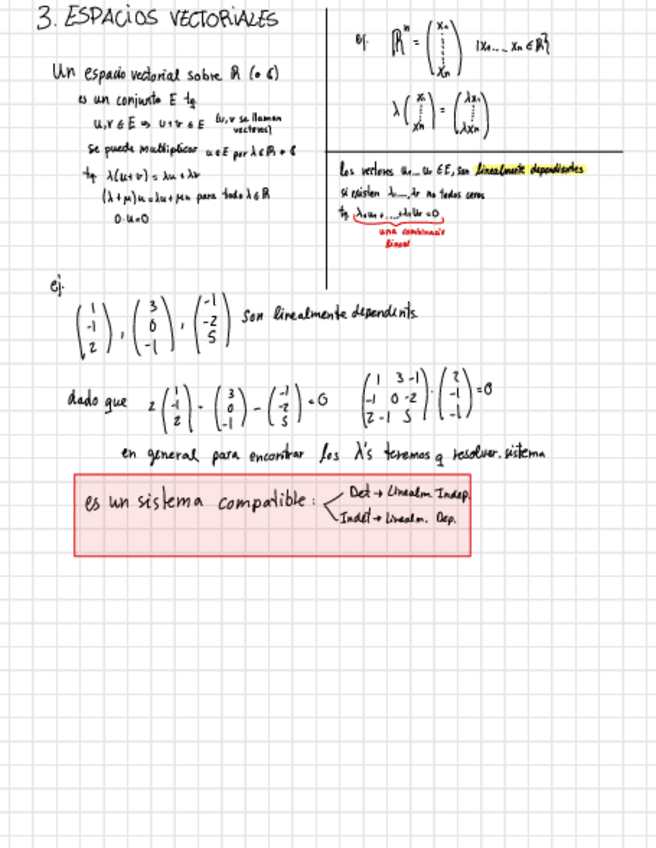 3. ESPACIOS VECTORIALES
Un espacio vectorial sobre R (o C)
es un conjunto E tq
u,v ∈ E ⇒ u+v ∈ E (u,v se llaman
vectores)
Se puede multiplicar u∈E por λ∈R o C
tq λ(u+v) = λu + λv
(λ+μ)u = λu + μu para todo λ∈R
0·u=0
ej. Rⁿ = (x₁ ⋮ xₙ) |x₁... xₙ ∈ R}
λ(x₁ ⋮ xₙ) = (λx₁ ⋮ λxₙ)
los vectores u₁...uᵣ ∈ E, son linealmente dependientes
si existen λ₁...λr no todos ceros
tq λ₁u₁+...+λrur=0
una combinació
lineal
ej.
(1 -1 2), (3 0 -1), (-1 -2 5) son linealmente dependents.
dado que 2(1 -1 2) - (3 0 -1) - (-1 -2 5) = 0
(1 3 -1
-1 0 -2
2 -1 5) · (2 -1 -1) = 0
en general para encontrar los λ's tenemos q resolver. sistema
es un sistema compatible:
Det → Linealm. Indep.
Indet → Linealm. Dep.